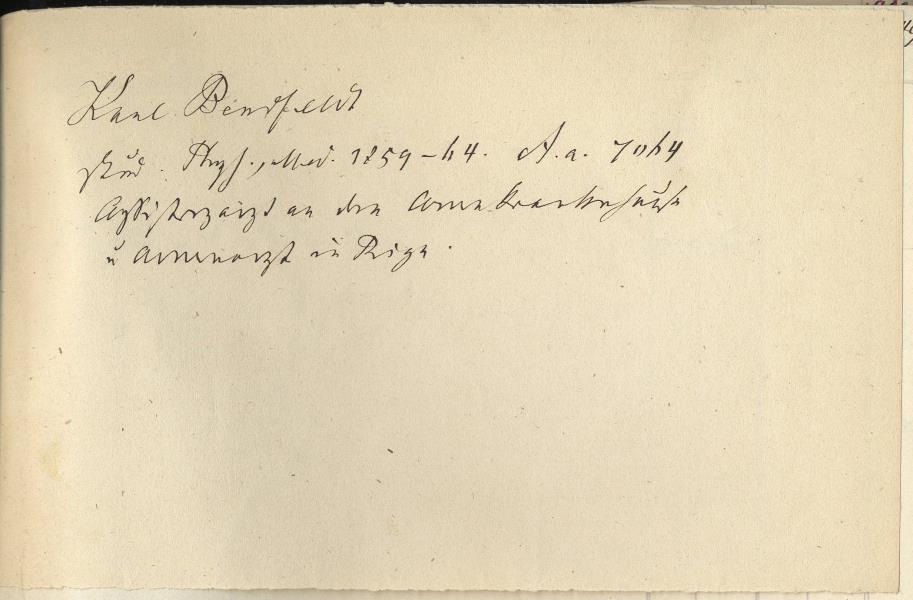 Karl Bendfeldt
stud. Phys., Med. 1859–64. A. a. 7064
Assistenzarzt an dem Armenkrankenhause
u Armenarzt in Riga.